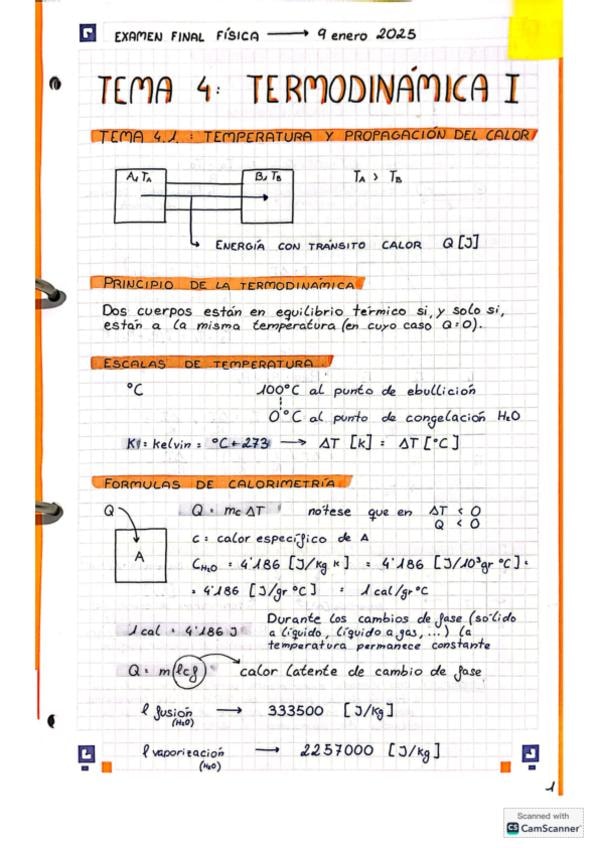 EXAMEN FINAL FÍSICA → 9 enero 2025
TEMA 4: TERMODINÁMICA I
TEMA 4.1.: TEMPERATURA Y PROPAGACIÓN DEL CALOR
A, TA B, TB TA > TB
ENERGÍA CON TRÁNSITO CALOR Q [J]
PRINCIPIO DE LA TERMODINÁMICA
Dos cuerpos están en equilibrio térmico si, y solo si,
están a la misma temperatura (en cuyo caso Q=0).
ESCALAS DE TEMPERATURA
°C 100°C al punto de ebullición
0°C al punto de congelación H₂O
K = kelvin = °C + 273 → ΔT [k] = ΔT [°C]
FORMULAS DE CALORIMETRÍA
Q Q = mc ΔT nótese que en ΔT < 0
Q < 0
A
c = calor específico de A
CH₂O = 4'186 [J/kg K] = 4'186 [J/10³gr °C] =
= 4'186 [J/gr °C] = 1 cal/gr°C
1 cal = 4'186 J
Durante los cambios de fase (sólido
a líquido, líquido a gas, ...) la
temperatura permanece constante
Q = m lcf calor latente de cambio de fase
l fusión → 333500 [J/kg]
(H₂O)
l vaporización → 2257000 [J/kg]
(H₂O)
1
Scanned with
CS CamScanner